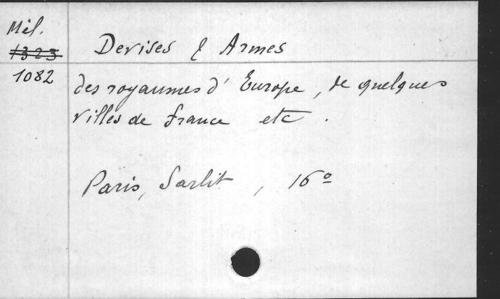 Mél.
1323
1082
Devises & Armes
des royaumes d'Europe, de quelques
villes de France etc.
Paris, Sarlit, 16º